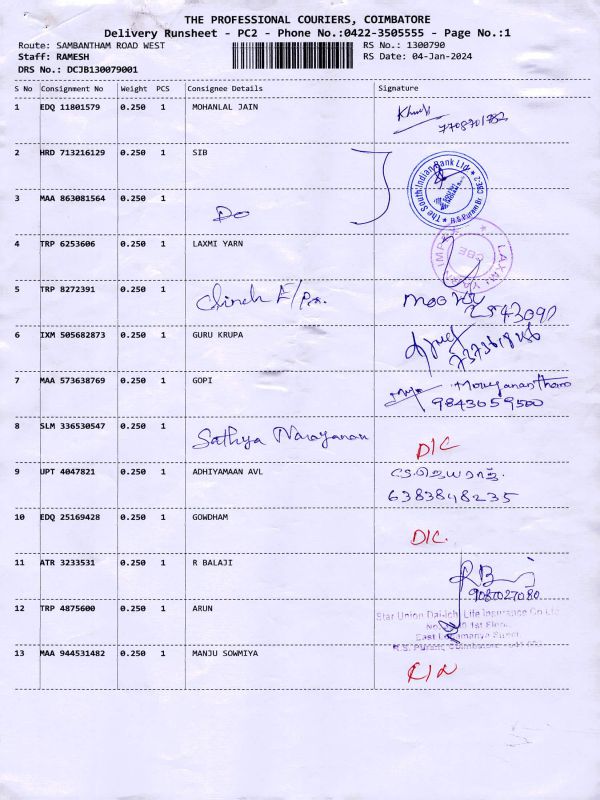 THE PROFESSIONAL COURIERS, COIMBATORE
Delivery Runsheet - PC2 - Phone No.:0422-3505555 - Page No.:1
Route: SAMBANTHAM ROAD WEST
RS No.: 1300790
Staff: RAMESH
RS Date: 04-Jan-2024
DRS No.: DCJB130079001
S No Consignment No Weight PCS Consignee Details Signature
1 EDQ 11801579 0.250 1 MOHANLAL JAIN
7708701782
2 HRD 713216129 0.250 1 SIB
The South Indian Bank Ltd
R.S.Puram Br. CBE-2
3 MAA 863081564 0.250 1 Do
4 TRP 6253606 0.250 1 LAXMI YARN
LAXMI YARN
CBE
5 TRP 8272391 0.250 1
2543097
6 IXM 505682873 0.250 1 GURU KRUPA
7 MAA 573638769 0.250 1 GOPI
9843059500
8 SLM 336530547 0.250 1 Sathya Narayanan D/C
9 UPT 4047821 0.250 1 ADHIYAMAAN AVL
6383848235
10 EDQ 25169428 0.250 1 GOWDHAM D/C.
11 ATR 3233531 0.250 1 R BALAJI
9087027080
12 TRP 4875600 0.250 1 ARUN
Star Union Dai-ichi Life Insurance Co Ltd
1st Floor,
East Lokamanya Street,
R.S. Puram, Coimbatore
13 MAA 944531482 0.250 1 MANJU SOWMIYA